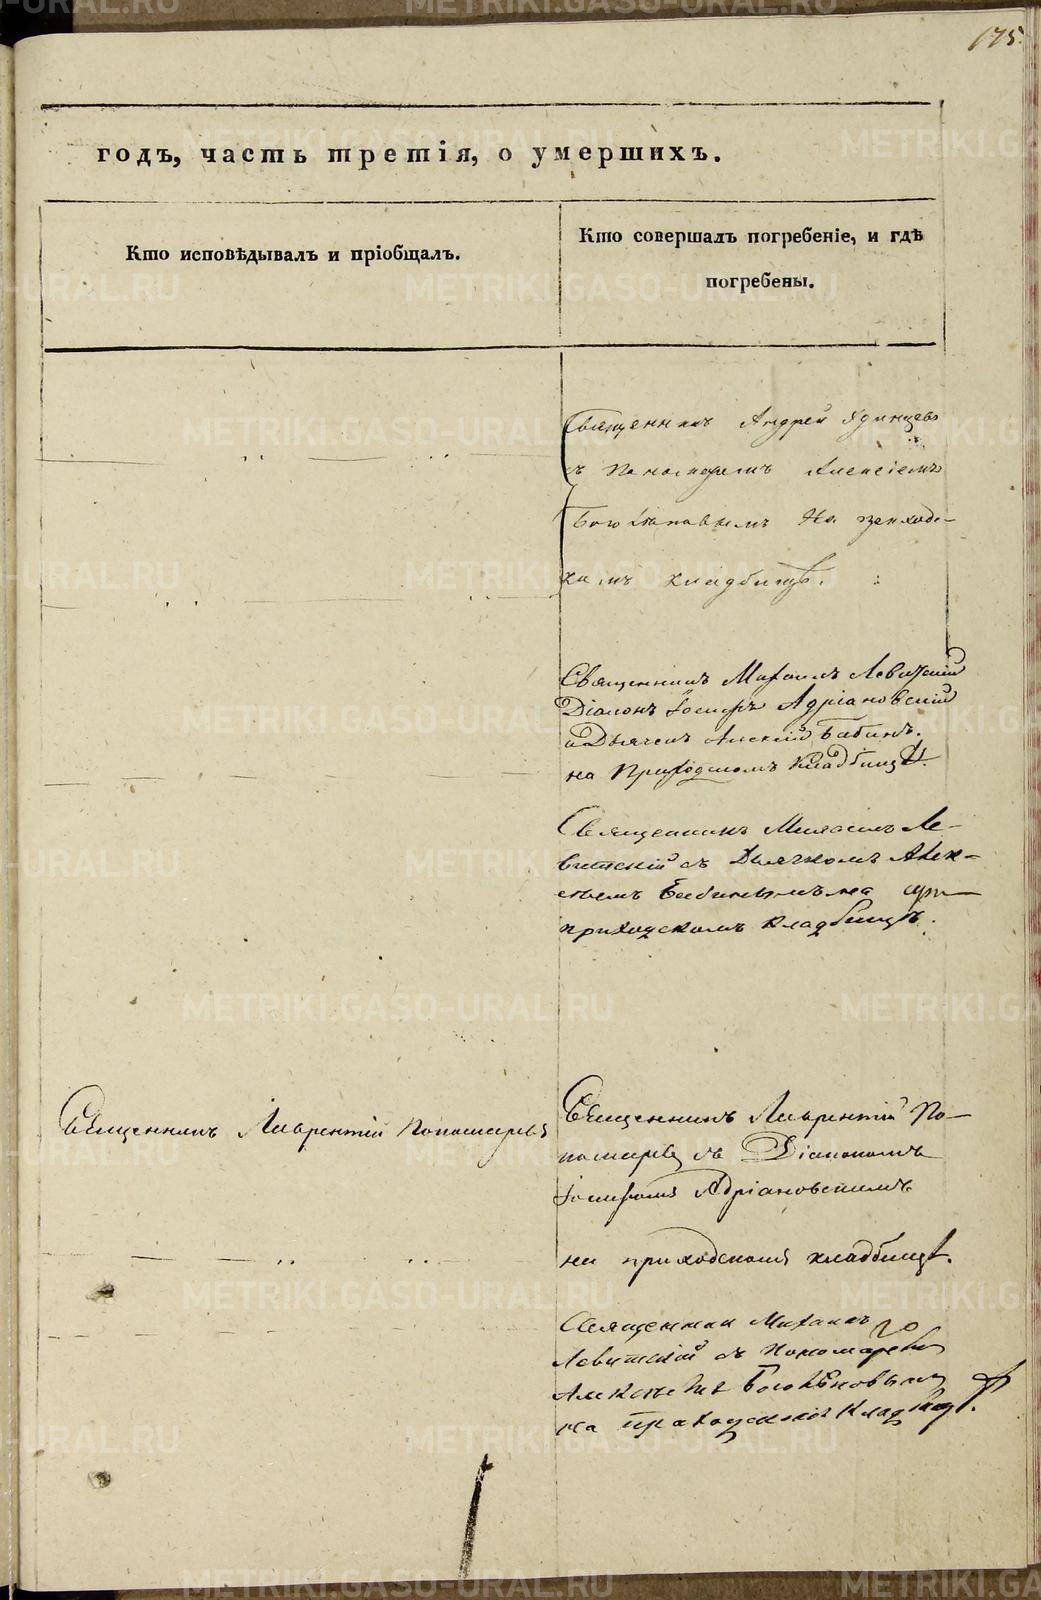 175.
годъ, часть третія, о умершихъ.
Кто исповѣдывалъ и пріобщалъ.
Кто совершалъ погребеніе, и гдѣ
погребены.
Священникъ Андрей Удинцевъ
съ Пономаремъ Алексіемъ
на приход-
скомъ кладбищѣ.
Священникъ Михаилъ Левитскій
Діаконъ Іосифъ Адріановскій
и Дьячекъ Алексій Бабинъ.
на Приходскомъ Кладбищѣ.
Священникъ Михаилъ Ле-
витскій съ Дьячкомъ Алек-
сѣемъ Бабинымъ на при
приходскомъ кладбищѣ.
Священникъ Лаврентій Пономаревъ
Священникъ Лаврентій По-
номаревъ съ Діакономъ
Іосифомъ Адріановскимъ
на приходскомъ кладбищѣ.
Священникъ Михаилъ
Левитскій съ Пономаремъ
Алексѣемъ
на приходскомъ Кладбищѣ.
METRIKI.GASO-URAL.RU